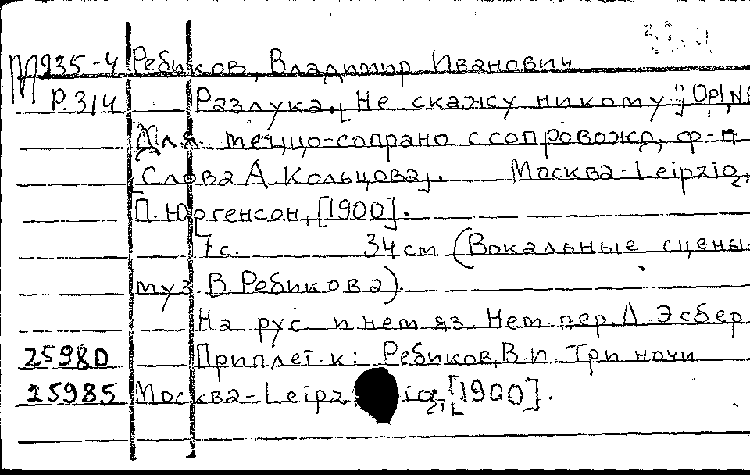 М935-4 Ребиков, Владимир Иванович
Р.314 Разлука. [Не скажу никому"] Op1, N
Для меццо-сопрано с сопровожд. ф-п
[Слова А Кольцова]. Москва-Leipzig,
П. Юргенсон, [1900].
7с. 34 см (Вокальные сцены
муз. В Ребикова).
На рус. и нем яз. Нем пер. Л Эсбер
25980 Приплет. к: Ребиков, В. И. Три ночи
25985 Москва-Leipzig, [1900].